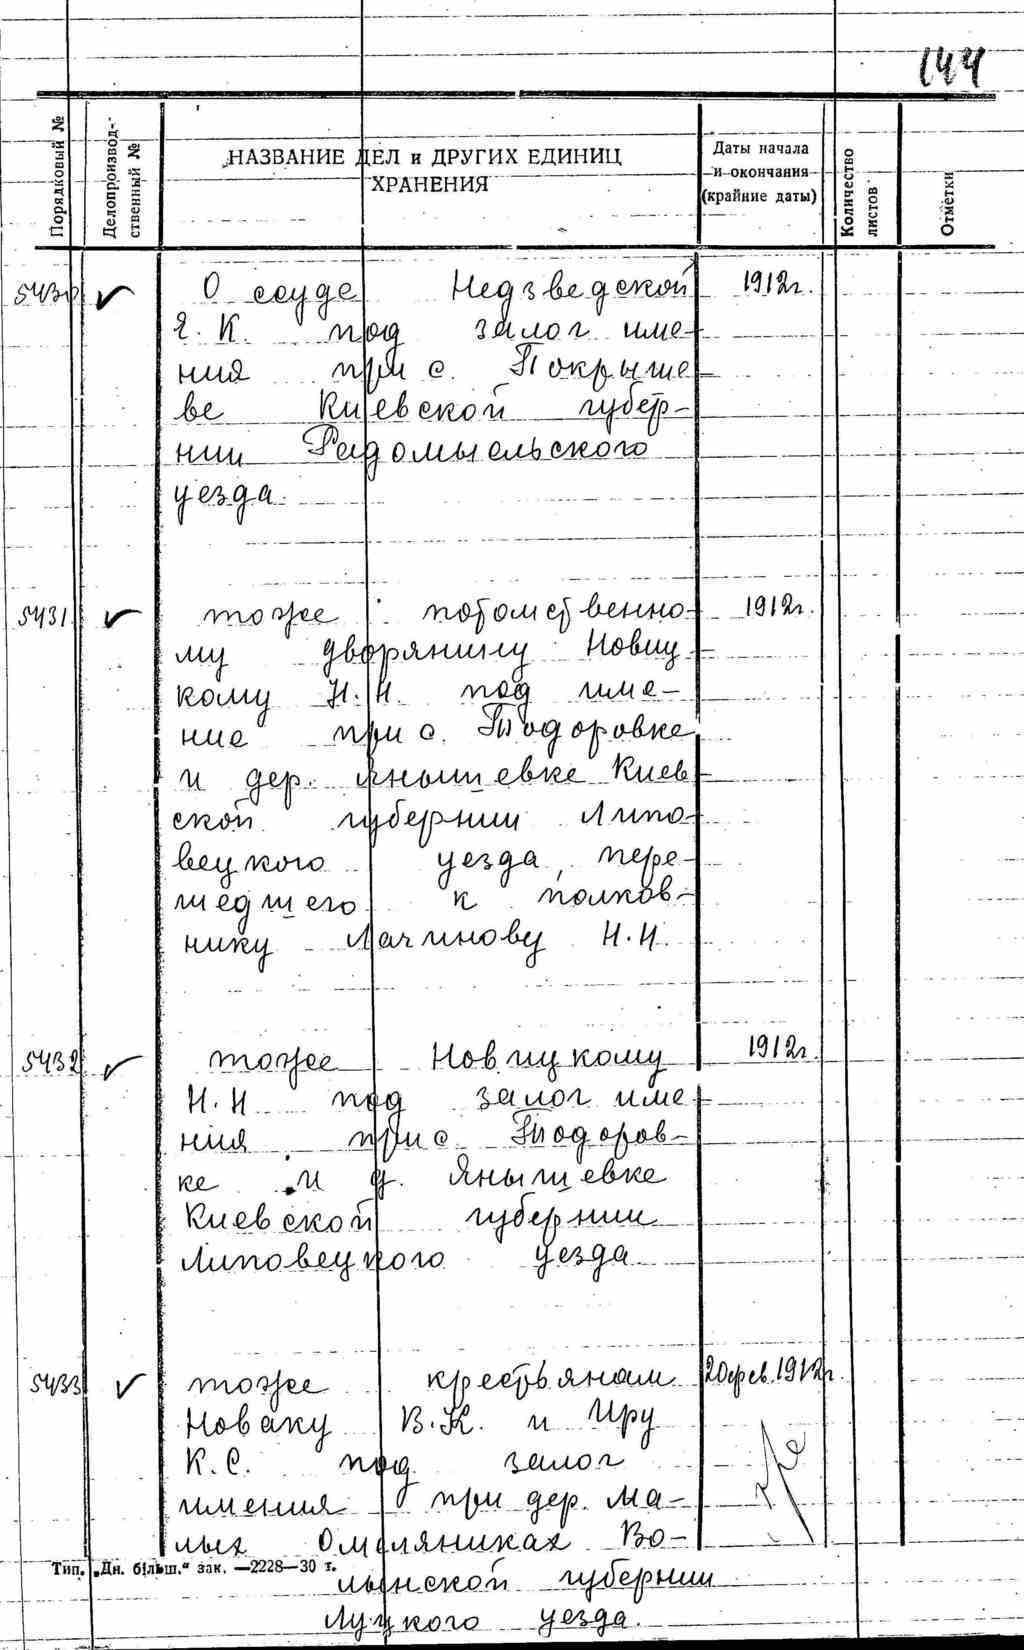 144
Порядковый №
Делопроизвод-
ственный №
НАЗВАНИЕ ДЕЛ и ДРУГИХ ЕДИНИЦ
ХРАНЕНИЯ
Даты начала
и окончания
(крайние даты)
Количество
листов
Отметки
5430 О ссуде Недзведской 1912г.
Я. К. под залог име-
ния при с. Покрыше
ве Киевской губер-
нии Радомысельского
уезда
5431 тоже потомственно- 1912г.
му дворянину Новиц
кому Н. Н. под име-
ние при с. Тодоровке
и дер. Янышевке Киев
ской губернии Липо-
вецкого уезда, пере-
шедшего к полков-
нику Лачинову Н. Н.
5432 тоже Новицкому 1912г.
Н. Н под залог име
ния при с Тодоров-
ке и д. Янышевке
Киевской губернии
Липовецкого уезда
5433 тоже крестьянам 20 фев. 1912г.
Новаку В. К. и Иру
К. С. под залог
имения при дер. Ма-
лых Омеляниках Во-
лынской губернии
Луцкого уезда.
Тип. „Дн. більш.“ зак. —2228—30 т.